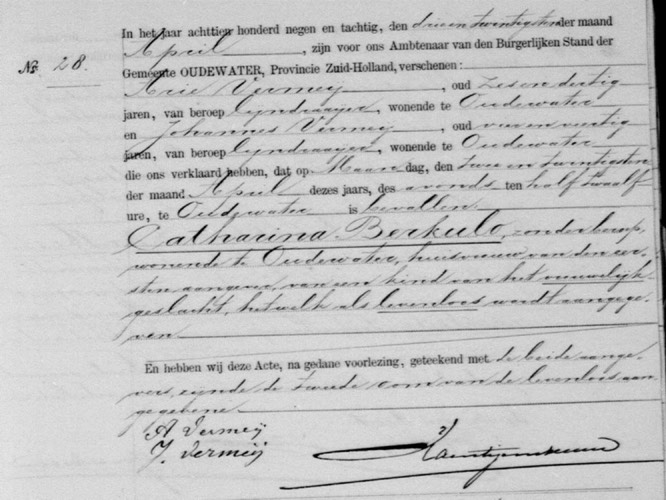 In het jaar achttien honderd negen en tachtig, den drieentwintigsten der maand
April, zijn voor ons Ambtenaar van den Burgerlijken Stand der
No. 28.
Gemeente OUDEWATER, Provincie Zuid-Holland, verschenen:
Arie Vermeij, oud zesendertig
jaren, van beroep Lijndraaijer, wonende te Oudewater
en Johannes Vermeij, oud vierenveertig
jaren, van beroep Lijndraaijer, wonende te Oudewater
die ons verklaard hebben, dat op Maandag, den twee en twintigsten
der maand April dezes jaars, des avonds ten half twaalf
ure, te Oudewater is bevallen
Catharina Berkulo, zonder beroep,
wonende te Oudewater, huisvrouw van den eer-
sten aangever, van een kind van het vrouwelijk
geslacht, hetwelk als levenloos wordt aangege-
ven
En hebben wij deze Acte, na gedane voorlezing, geteekend met de beide aange-
vers, zijnde de tweede oom van de levenloos aan-
gegebene
A Vermeij
J. Vermeij